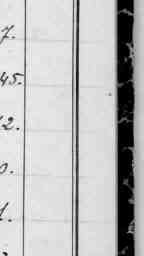 7.
45.
2.
0.
1.